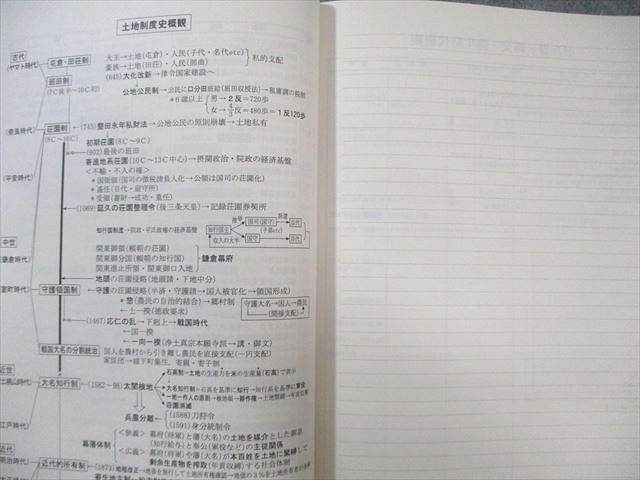 土地制度史概観
古代
(ヤマト時代)
屯倉・田荘制
大王→土地(屯倉)・人民(子代・名代etc)
豪族→土地(田荘)・人民(部曲)
私的支配
班田制
(7C後半〜10C初)
(645)大化改新→律令国家建設へ
公地公民制→公民に口分田班給(班田収授法)→租庸調の税制
*6歳以上
男→2反=720歩
女→4/3反=480歩=1反120歩
(奈良時代)
荘園制
(8C〜16C)
(743)墾田永年私財法→公地公民の原則崩壊→土地私有
初期荘園(8C〜9C)
(902)最後の班田
寄進地系荘園(10C〜13C中心)→摂関政治・院政の経済基盤
<不輸・不入の権>
(平安時代)
*国衙領(国司の徴税請負人化→公領は国司の荘園化)
*遙任(目代・留守所)
*受領(蓄財→成功・重任)
(1069)延久の荘園整理令(後三条天皇)→記録荘園券契所
知行国制度→院政・平氏政権の経済基盤
知行国主
推挙
国司(国守)
派遣
目代
(子弟etc)
収入の大半
国守
目代
中世
(鎌倉時代)
関東御領(頼朝の荘園)
関東御分国(頼朝の知行国)
関東進止所領・関東御口入地
鎌倉幕府
地頭の荘園侵略(地頭請・下地中分)
室町時代)
守護領国制
守護の荘園侵略(半済・守護請→国人被官化→領国形成)
*惣(農民の自治的結合)→郷村制
土一揆(徳政要求)
守護大名→国人→農民
(間接支配)
(1467)応仁の乱→下剋上→戦国時代
国一揆
一向一揆(浄土真宗本願寺派→講・御文)
戦国大名の分割統治
国人を農村から引き離し農民を直接支配(一円支配)
家臣団→城下町集住、寄親・寄子制
近世
大名知行制
(1582〜98)太閤検地
石高制→土地の生産力を米の生産量(石高)で表示
大名知行制→石高を基準に知行→知行高を基準に軍役
一地一作人の原則→検地帳→耕作権→土地緊縛→年貢収奪
荘園消滅
江戸時代)
兵農分離
(1588)刀狩令
(1591)身分統制令
幕藩体制
<狭義>
幕府(将軍)と藩(大名)の土地を媒介とした御恩
(知行給与)と奉公(軍役など)の主従関係
<広義>
幕府(将軍)や藩(大名)が本百姓を土地に緊縛して
剰余生産物を搾取(年貢収納)する社会体制
近代
明治時代)
近代的所有制
(1873)地租改正→地券を発行して土地所有権確認→地価の3%を土地所有者が